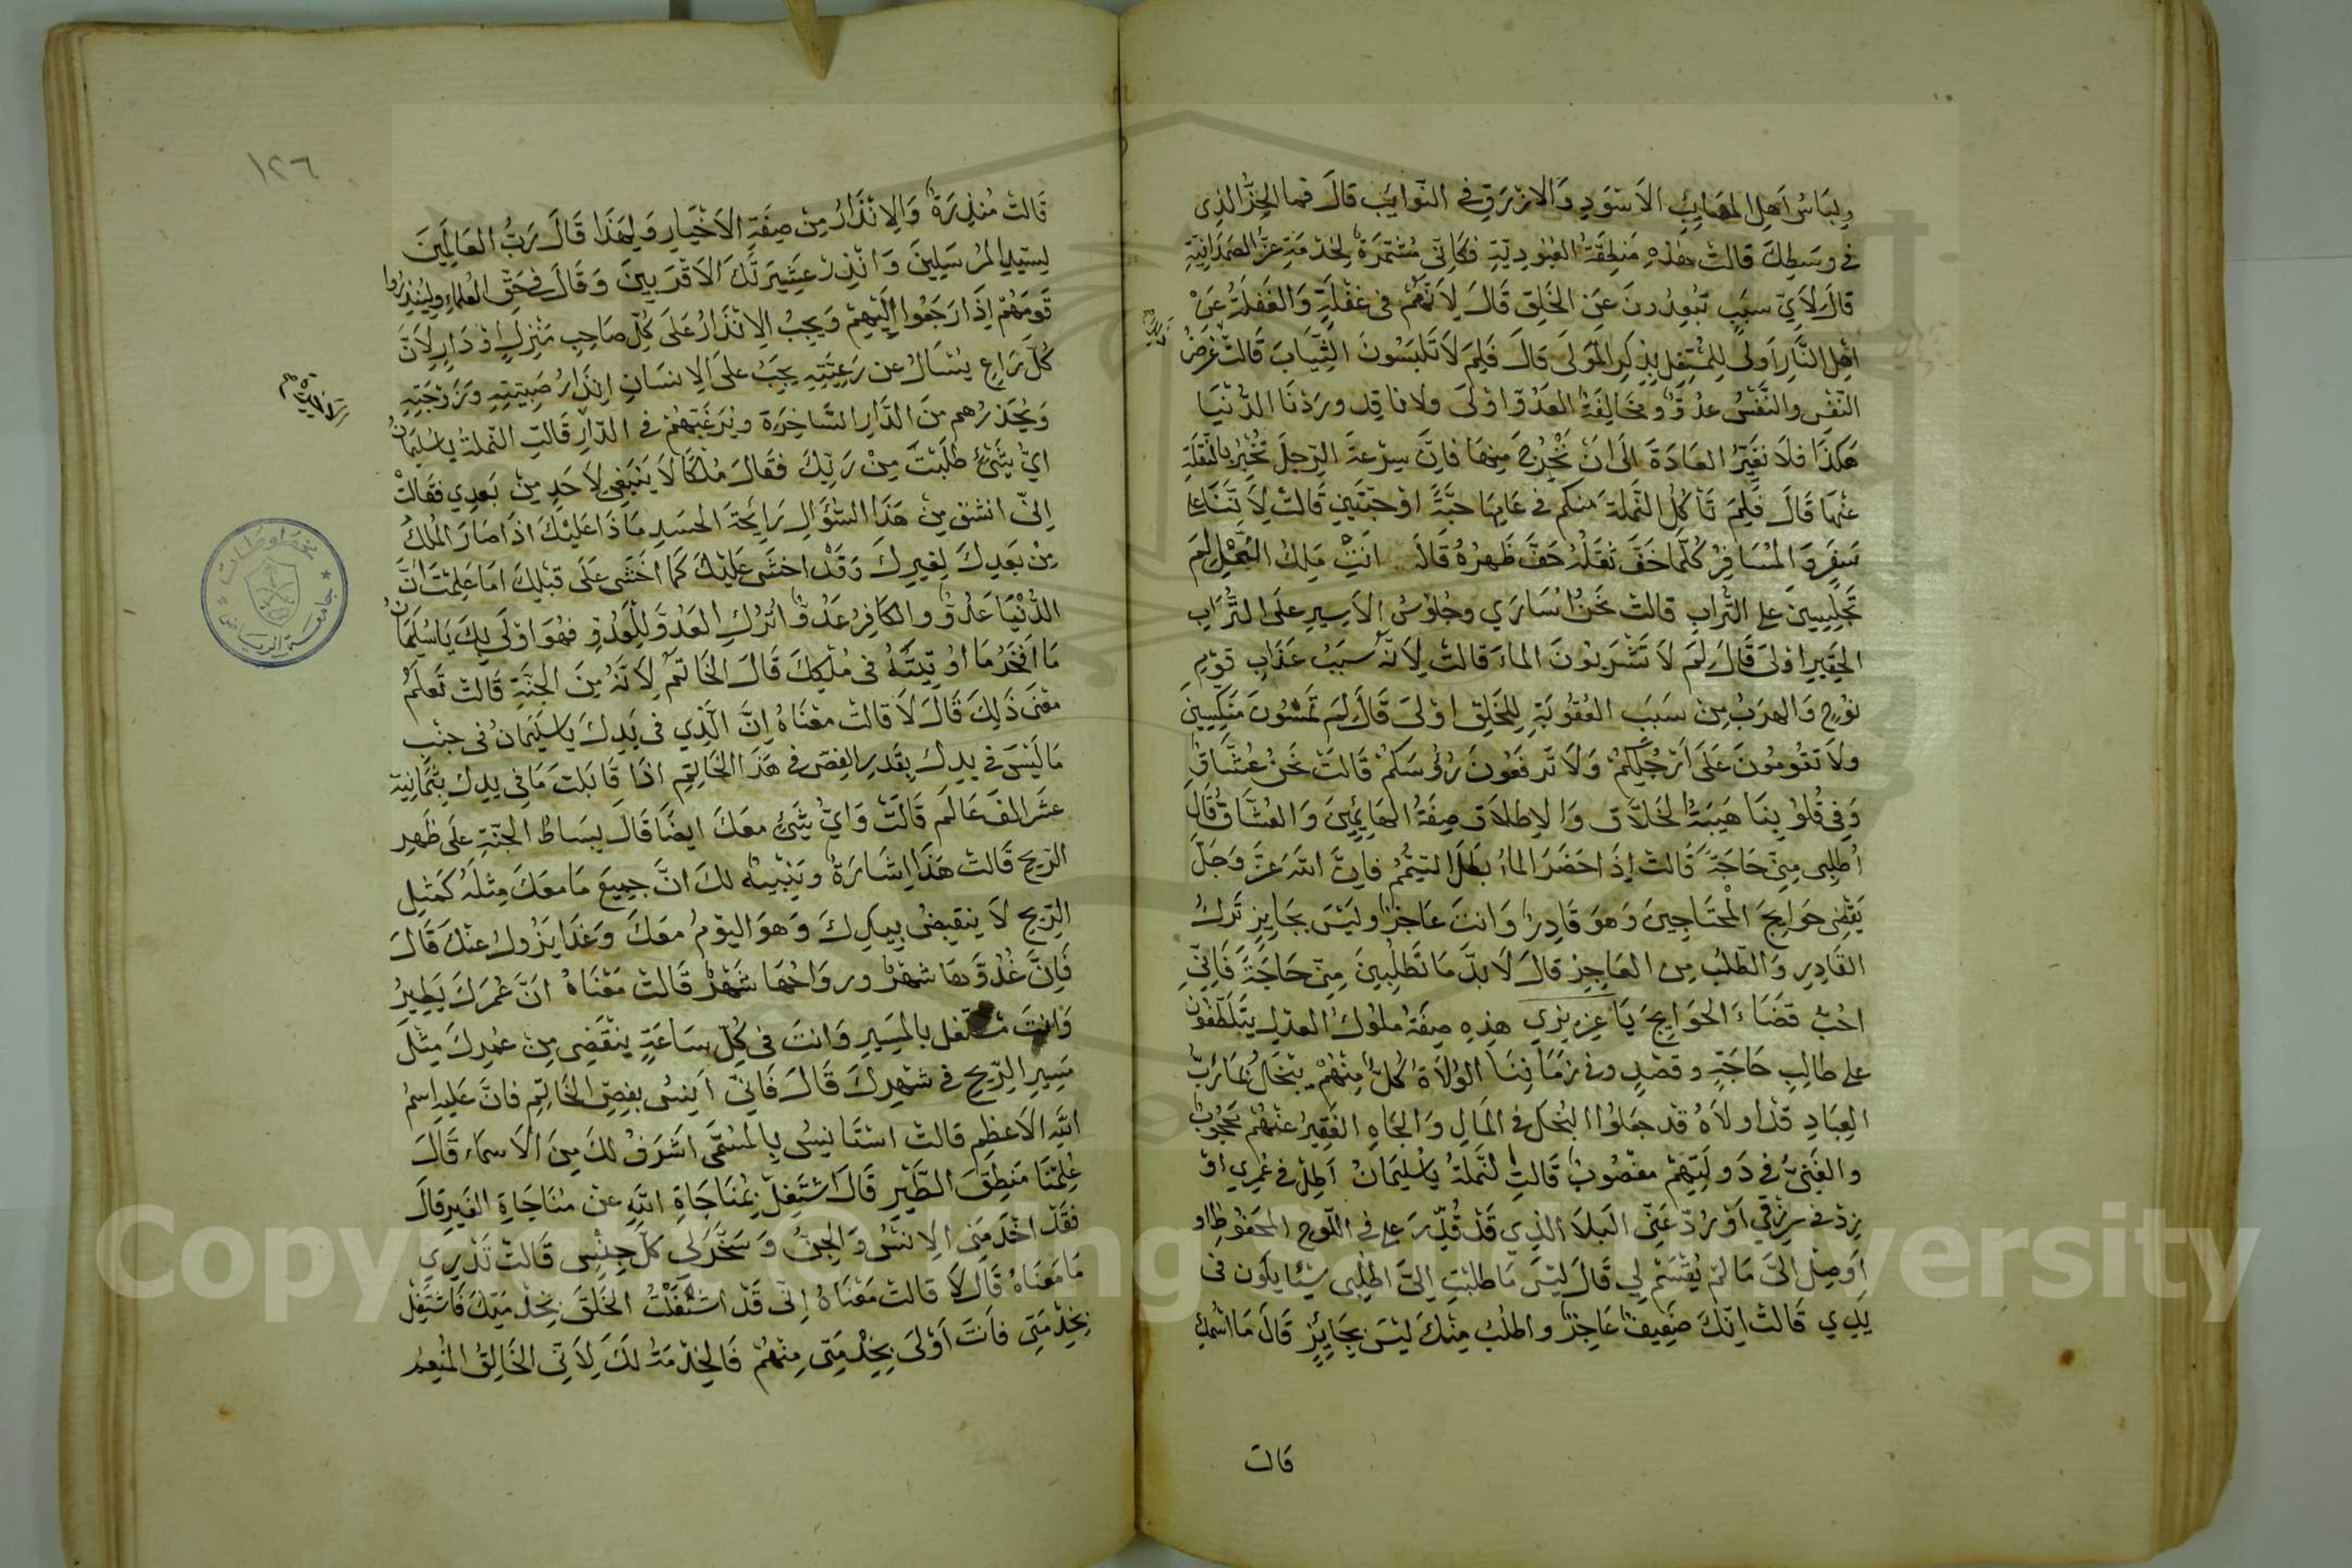 ولباس اهل المصايب الاسود والازرق في النوايب قال فما الخيط الذي
في وسطك قالت هذه منطقة العبودية فكاني مشتمرة لخدمة عز الصمدانية
قال لاي سبب تبعدون عن الخلق قال لانهم في غفلة والغفلة عن
اهل النار اولى للمشتغل بذكر المولى قال فلم لا تلبسون الثياب قالت غرض
النفس والنفس عدو ومخالفة العدو اولى ولانا قد وردنا الدنيا
هكذا فلا نغير العادة الى ان نخرج منها فان سرعة الرجل تخبر بالنقلة
عنها قال فلم تاكل النملة منكم في عامها حبة او حبتين قالت لاننا على
سفر والمسافر كلما خف ثقله خف ظهره قال انت ملك النمل لم
تجلسين على التراب قالت نحن اسارى وجلوس الاسير على التراب
الحقير اولى قال لم لا تشربون الماء قالت لانه سبب عذاب قوم
نوح والهرب من سبب العقوبة للخلق اولى قال لم تمشون منكبين
ولا تقومون على ارجلكم ولا ترفعون رؤسكم قالت نحن عشاق
وفي قلوبنا هيبة الخلاق والاطلاق صفة الهايمين والعشاق قال
اطلبي مني حاجة قالت اذا حضر الماء بطل التيمم فان الله عز وجل
يقضي حوايج المحتاجين وهو قادر وانت عاجز وليس بجايز ترك
القادر والطلب من العاجز قال لا بد ما تطلبين مني حاجة فاني
احب قضاء الحوايج يا عزيزي هذه صفة ملوك العدل يتلطفون
على طالب حاجة وقصد وفي زماننا الولاة كل منهم بخال بما رب
العباد قد اولاه قد جعلوا البخل في المال والجاه الفقير عنهم محجوب
والغني في دولتهم مغصوب قالت النملة يا سليمان اطل في عمري او
زد في رزقي او رد عني البلا الذي قد قدر علي في اللوح المحفوظ او
اوصل الي ما لم يقسم لي قال ليس ما طلبت الي اطلبي شيئا يكون في
يدي قالت انك ضعيف عاجز واطلب منك ليس بجايز قال ما اسمك
قالت
١٢٦
قالت منذرة والانذار من صفة الاخيار ولهذا قال رب العالمين
لسيد المرسلين وانذر عشيرتك الاقربين وقال في حق العلماء ولينذروا
قومهم اذا رجعوا اليهم ويجب الانذار على كل صاحب منزل او دار لان
كل راع يسال عن رعيته يجب على الانسان انذار صبيته وزوجته
ويحذرهم من الدار الساخرة ويرغبهم في الدار قالت النملة يا سليمان
اي شئ طلبت من ربك فقال ملكا لا ينبغي لاحد من بعدي فقالت
اني انشق من هذا السؤال رايحة الحسد ماذا عليك اذا صار الملك
من بعدك لغيرك وقد اخشى عليك كما اخشى على قبلك اما علمت ان
الدنيا عدو والكافر عدو اترك العدو للعدو فهو اولى بك يا سليمان
ما افخر ما اوتيته في ملكك قال الخاتم لانه من الجنة قالت تعلم
معنى ذلك قال لا قالت معناه ان الذي في يدك يا سليمان في جنب
ما ليس في يدك بقدر الفص في هذا الخاتم اذا قابلت ما في يدك بثمانية
عشر الف عالم قالت واي شئ معك ايضا قال بساط الجنة على ظهر
الريح قالت هذا اشارة وتنبيه لك ان جميع ما معك مثله كمثل
الريح لا ينقبض بيدك وهو اليوم معك وغدا يزول عنك قال
فان غدوها شهر ورواحها شهر قالت معناه ان عمرك يطير
وانت مشتغل بالمسير وانت في كل ساعة ينقضي من عمرك مثل
مسير الريح في شهرك قال فاني انسي بفص الخاتم فان عليه اسم
الله الاعظم قالت استانس بالمسمى اشرف لك من الاسماء قال
علمتنا منطق الطير قال اشتغل بمناجاة الله عن مناجاة الغير قال
فقد اخدمني الانس والجن وسخر لي كل جنس قالت تدري
ما معناه قال لا قالت معناه اني قد اشغلت الخلق بخدمتك فاشتغل
بخدمتي فانت اولى بخدمتي منهم فالخدمة لك لاني الخالق المنعم
مخطوطات
جامعة الرياض
Copyright © King Saud University